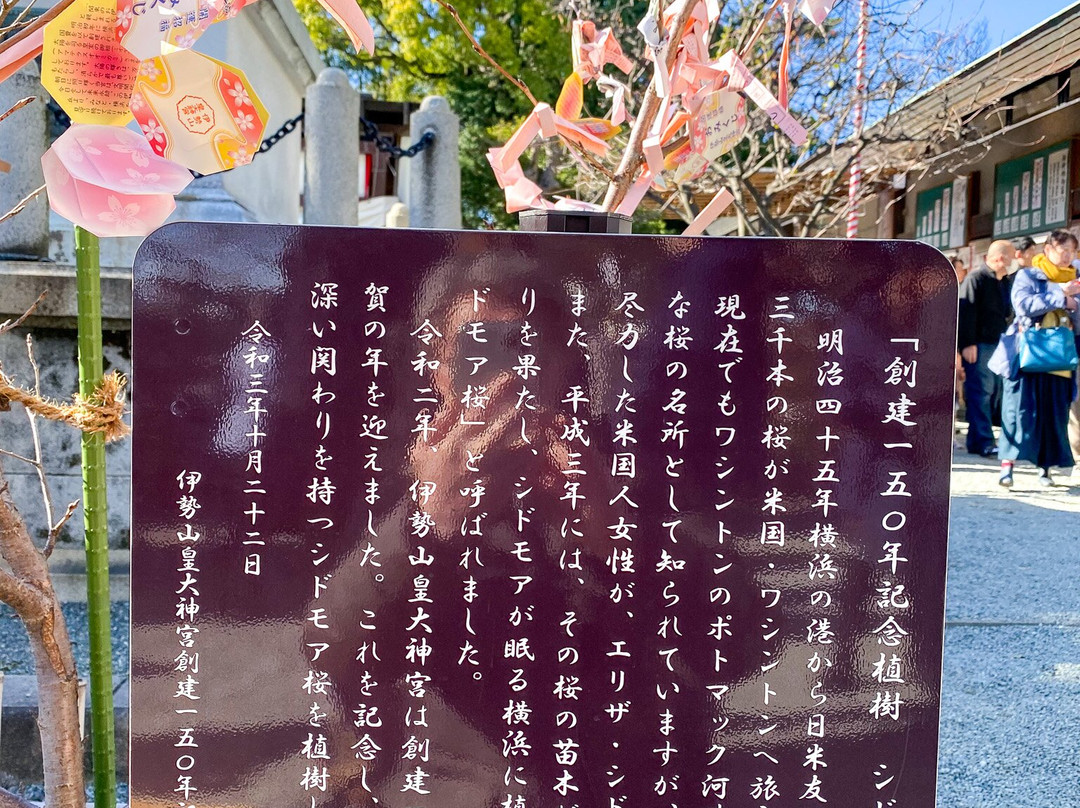 「創建一五〇年記念植樹 シド
明治四十五年横浜の港から日米友
三千本の桜が米国・ワシントンへ旅
現在でもワシントンのポトマック河
な桜の名所として知られていますが、
尽力した米国人女性が、エリザ・シド
また、平成三年には、その桜の苗木が
りを果たし、シドモアが眠る横浜に植
ドモア桜」と呼ばれました。
令和二年、伊勢山皇大神宮は創建
賀の年を迎えました。これを記念し、
深い関わりを持つシドモア桜を植樹し
令和三年十月二十二日
伊勢山皇大神宮創建一五〇年記
おみくじ
開運招福